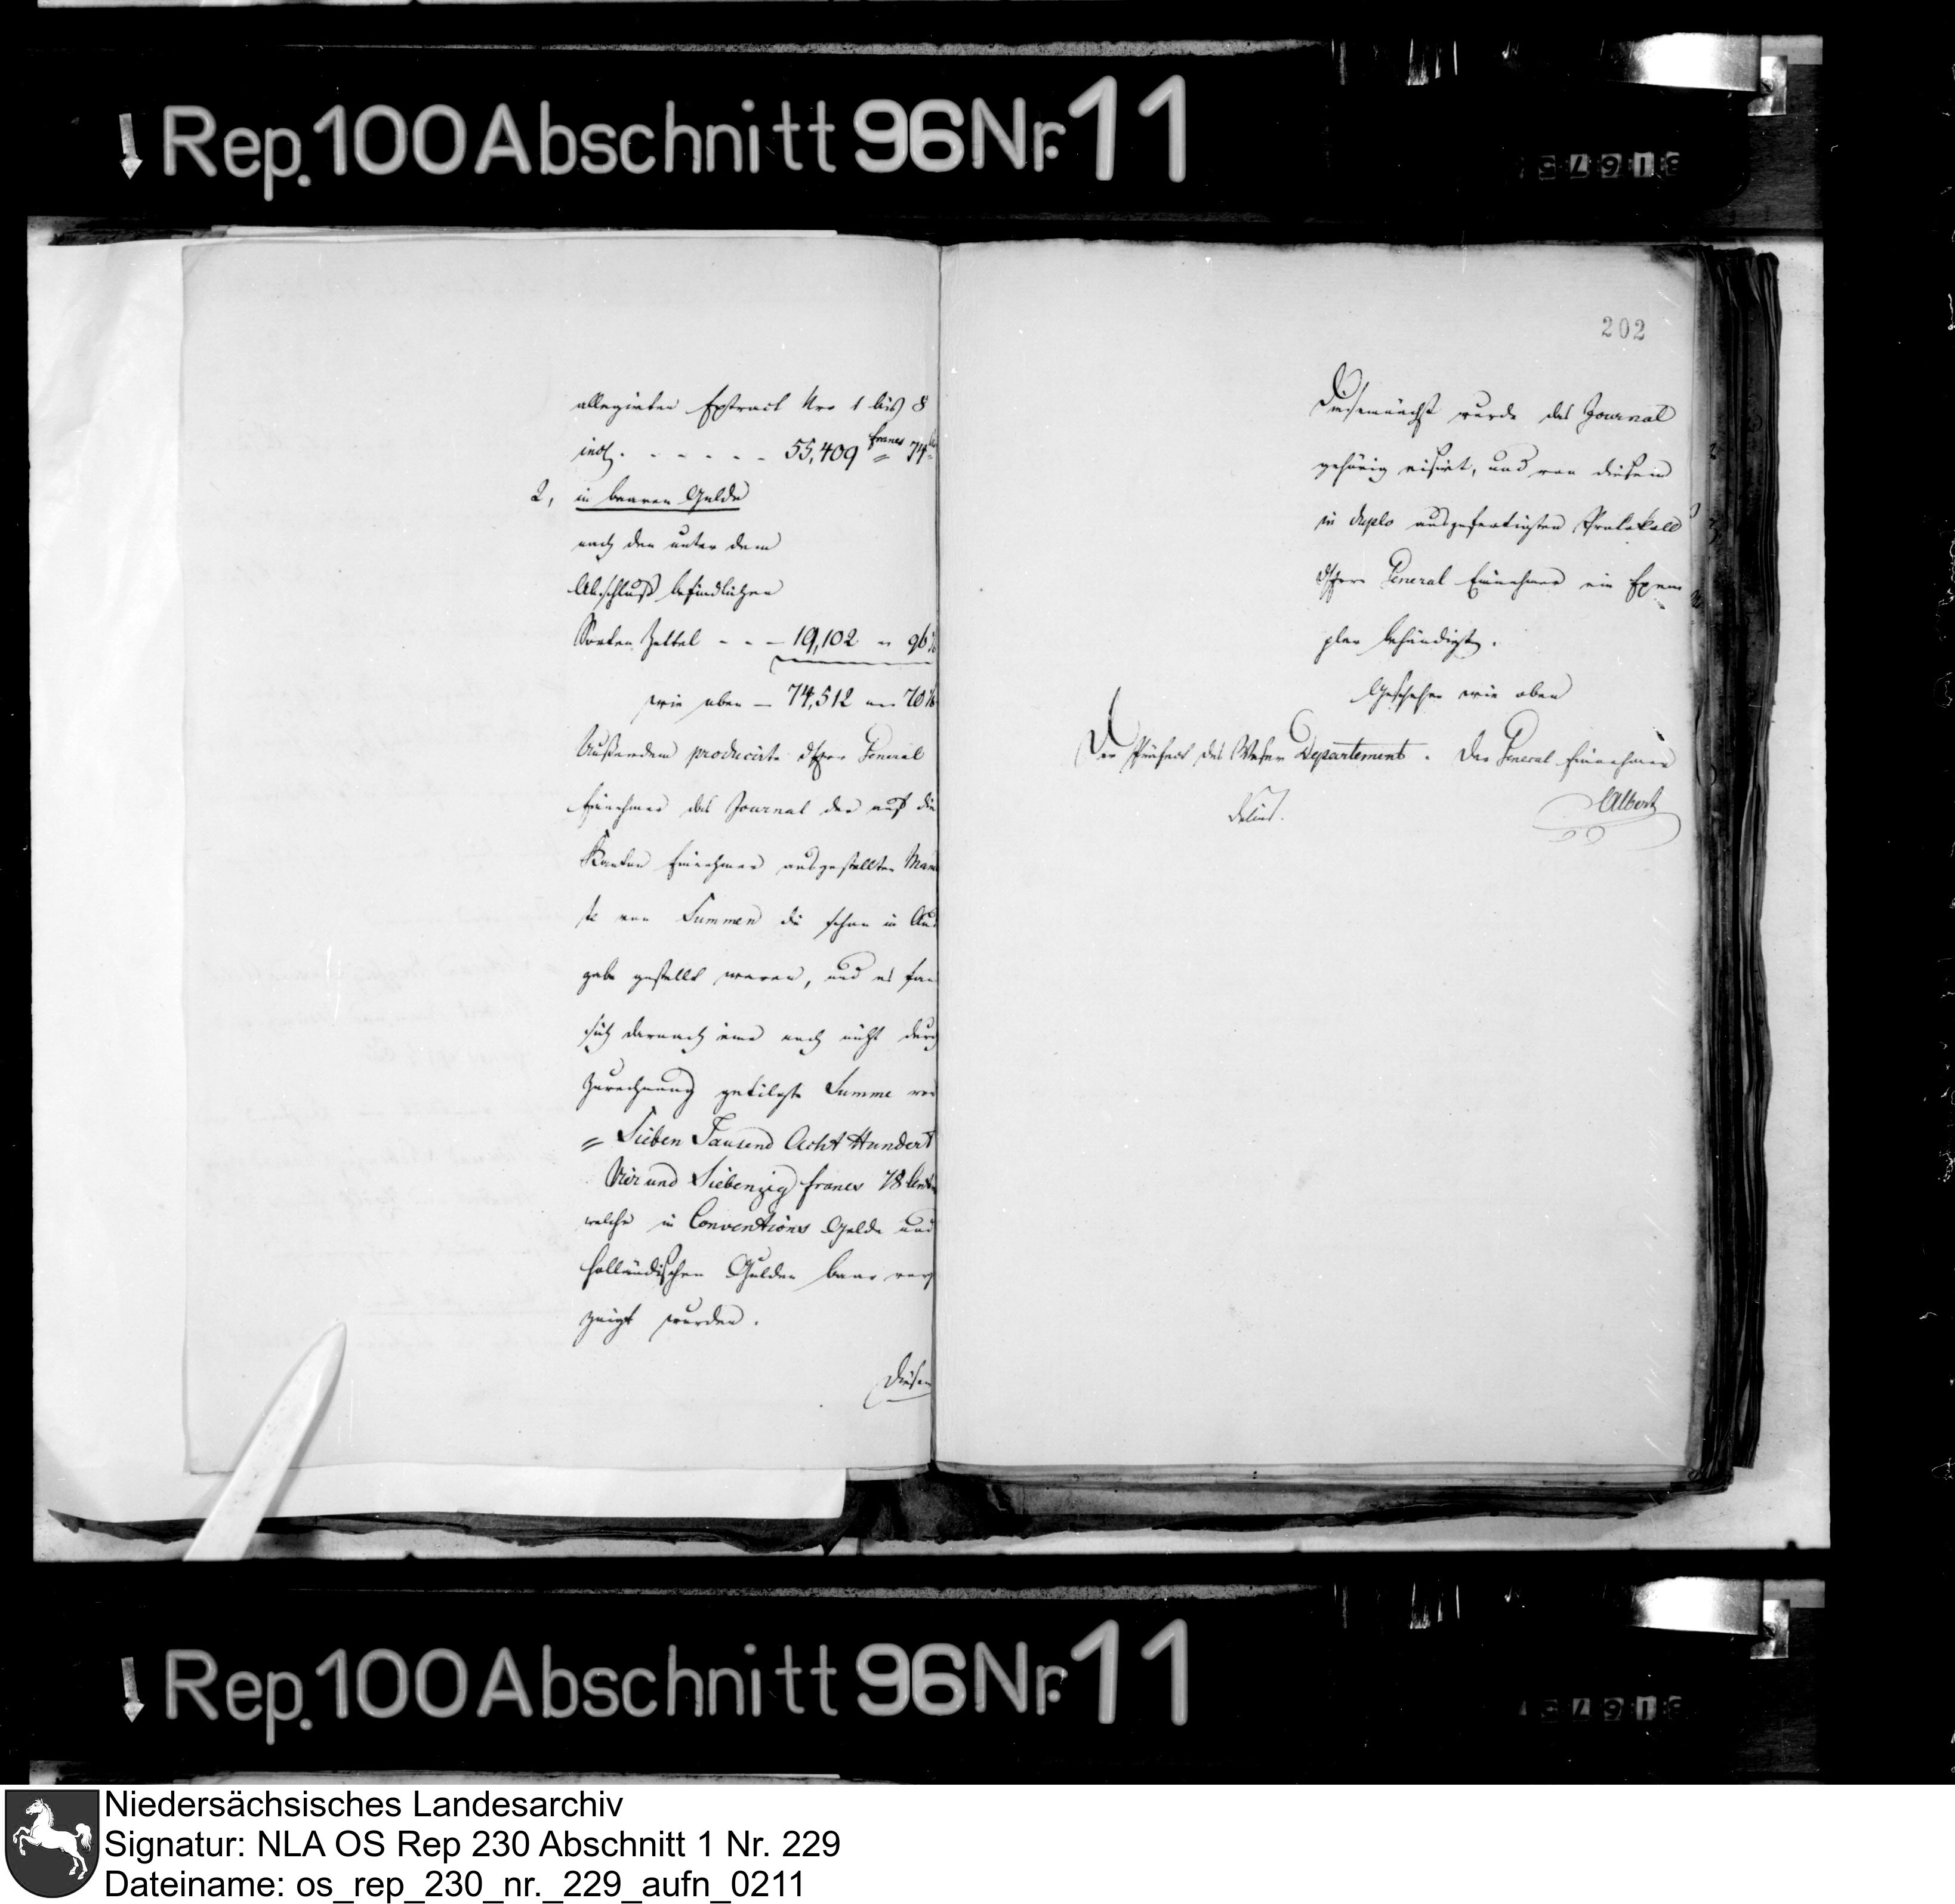 Rep. 100 Abschnitt 96 Nr. 11
allegirten Extract Nro 1 bis 8
incl. - - - - - - 55,409 francs 74
2, in baaren Gelde
nach den unter dem
Abschluß befindlichen
Sorten Zettel - - - 19,102 " 96
wie oben — 74,512 " 70
Außerdem producirte Herr General
Einnehmer das Journal der auf die
Kanton Einnehmer ausgestellten Man
te von Summen die schon in Aus
gabe gestellt waren, und es fan
sich darnach eine noch nicht durch
Zurechnung getilgte Summe von
= Sieben Tausend Acht Hundert
Vier und Siebenzig francs 78 Cent
welche in Conventions Gelde und
holländischen Gulden baar vor
zeigt wurden.
Diesem
202
Diesemnächst wurde das Journal
gehörig visirt, und von diesem
in duplo ausgefertigten Protokoll
Herrn General Einnehmer ein Exem
plar behändigt.
Geschehen wie oben
Der Präfect des Weser Departement. Der General Einnehmer
Delius. Albert
Rep. 100 Abschnitt 96 Nr. 11
Niedersächsisches Landesarchiv
Signatur: NLA OS Rep 230 Abschnitt 1 Nr. 229
Dateiname: os_rep_230_nr._229_aufn_0211